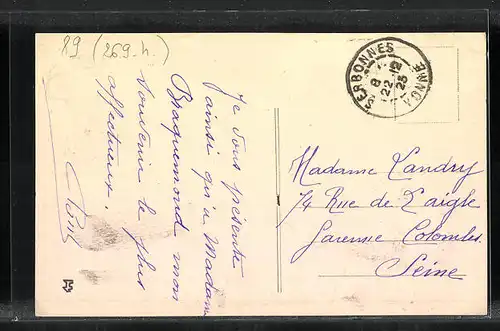 89 (269.h.)
SERBONNES
YONNE
8
22-12
23
Je vous présente
ainsi qu'à Madame
Braquemond mon
souvenir le plus
affectueux.
Madame Landry
74 Rue de l'aigle
Garenne Colombes
Seine